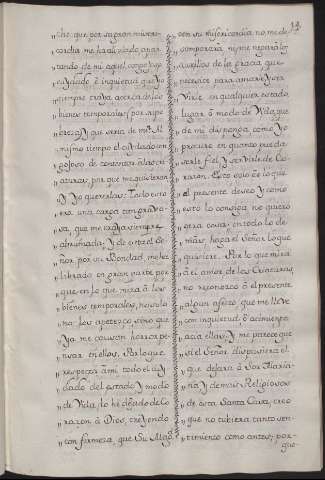 13
„ cho que por su gran miseri-
„ cordia me ha aliviado apar-
„ tando de mi aquel congojoso
„ cuydado è inquietud que yo
„ siempre traìa acerca de los
„ bienes temporales, por
„ breza, y que seria de mi. Al
„ mismo tiempo el cuydado con-
„ gojoso de contentar alas cri-
„ aturas, por que me quisieran
„ y yo quererlas. Todo esto
„ era una carga tan grabo-
„ sa, que me traìa siempre
„ abrumada; y de esto el Se-
„ ñor por su Bondad, me há
„ librado en gran parte por
„ que en lo que mira à los
„ bienes temporales, no solo
„ no los apetezco, sino que
„ ya me causan horror pe-
„ nsar en ellos. Por lo que
„ respecta à mi, todo el cuy-
„ dado del estado, y modo
„ de Vida, lo hè dejado de Co-
„ razon, à Dios, creyendo
„ con firmeza, que Su Magd.
„ con su misericordia no me de-
„ samparará, ni me negará los
„ auxilios de la gracia, que
„ necesite para amarle, y ser-
„ Virle en qualquier estado,
„ lugar, ò modo de Vida, que
„ de mi disponga, como yo
„ procure en quanto pueda
„ serle fiel, y servirle de Co-
„ razon. Esto es lo que
„ al presente deseo, y como
„ esto lo consiga no quiero
„ otra cosa; en todo lo de-
„ mas, haga el Señor lo que
„ quisiere. Por lo que mira
„ à el amor de las Criaturas
„ no reconozco al presente
„ algun afecto que me lleve
„ con inquietud, ò
„ acia ellas; y me parece que
„ si el Señor dispusiera el
„ que dejara à Sor Maria-
„ na, y demas Religiosas
„ de esta Santa Casa, creo
„ que no tubiera tanto sen-
„ timiento como antes; por-
que